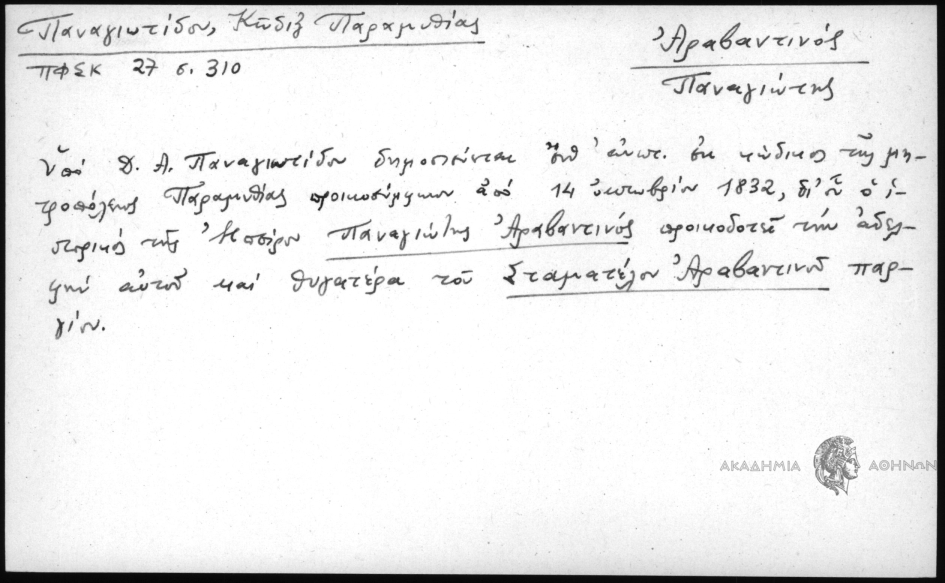 Παναγιωτίδου, Κῶδιξ Παραμυθίας
ΠΦΣΚ 27 σ. 310
Ἀραβαντινός
Παναγιώτης
Ὑπό Δ. Α. Παναγιωτίδου δημοσιεύεται ἔνθ' ἀνωτ. ἐκ κώδικος τῆς μη-
τροπόλεως Παραμυθίας προικοσύμφωνον ἀπό 14 ὀκτωβρίου 1832, δι' οὗ ὁ ἱ-
στορικός τῆς Ἠπείρου Παναγιώτης Ἀραβαντινός προικοδοτεῖ τήν ἀδελ-
φήν αὐτοῦ καί θυγατέρα τοῦ Σταματέλου Ἀραβαντινοῦ παρ-
γίου.
ΑΚΑΔΗΜΙΑ ΑΘΗΝΩΝ